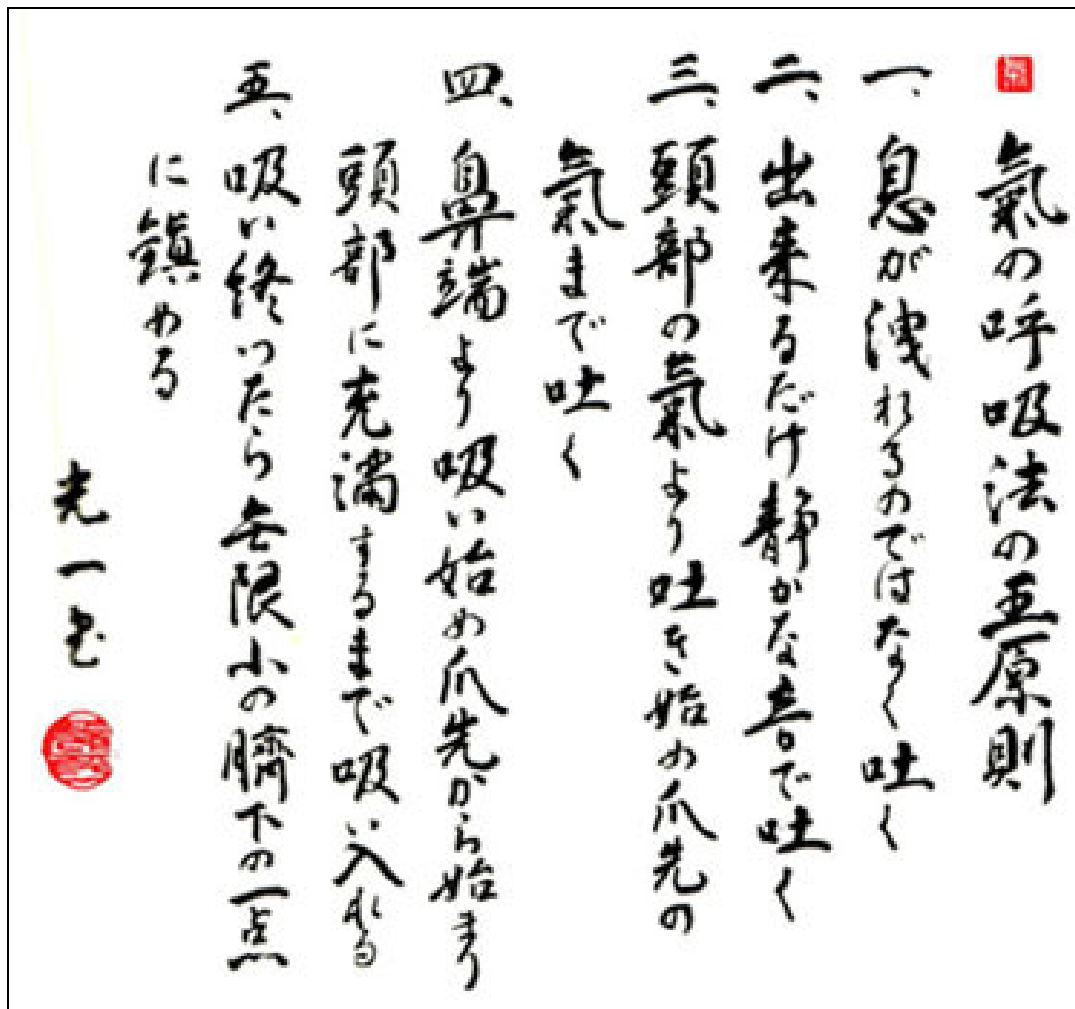 氣の呼吸法の五原則
一、息が洩れるのではなく吐く
二、出来るだけ静かな音で吐く
三、頭部の氣より吐き始め爪先の
氣まで吐く
四、鼻端より吸い始め爪先から始まり
頭部に充満するまで吸い入れる
五、吸い終いったら無限小の臍下の一点
に鎮める
光一書